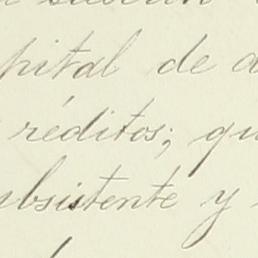 pital de
réditos; qu
ubsistente y